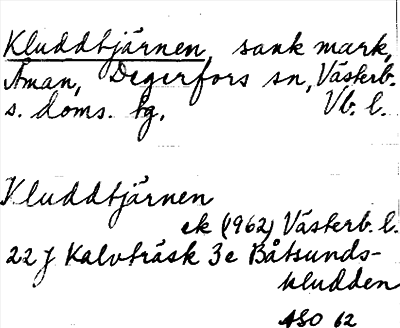 Kluddtjärnen, sank mark,
Åman, Degerfors sn, Västerb.
s. doms. tg, Vb. l.
Kluddtjärnen
ek (1962) Västerb. l.
22 J Kalvträsk 3e Båtsunds-
kludden
ASO 62